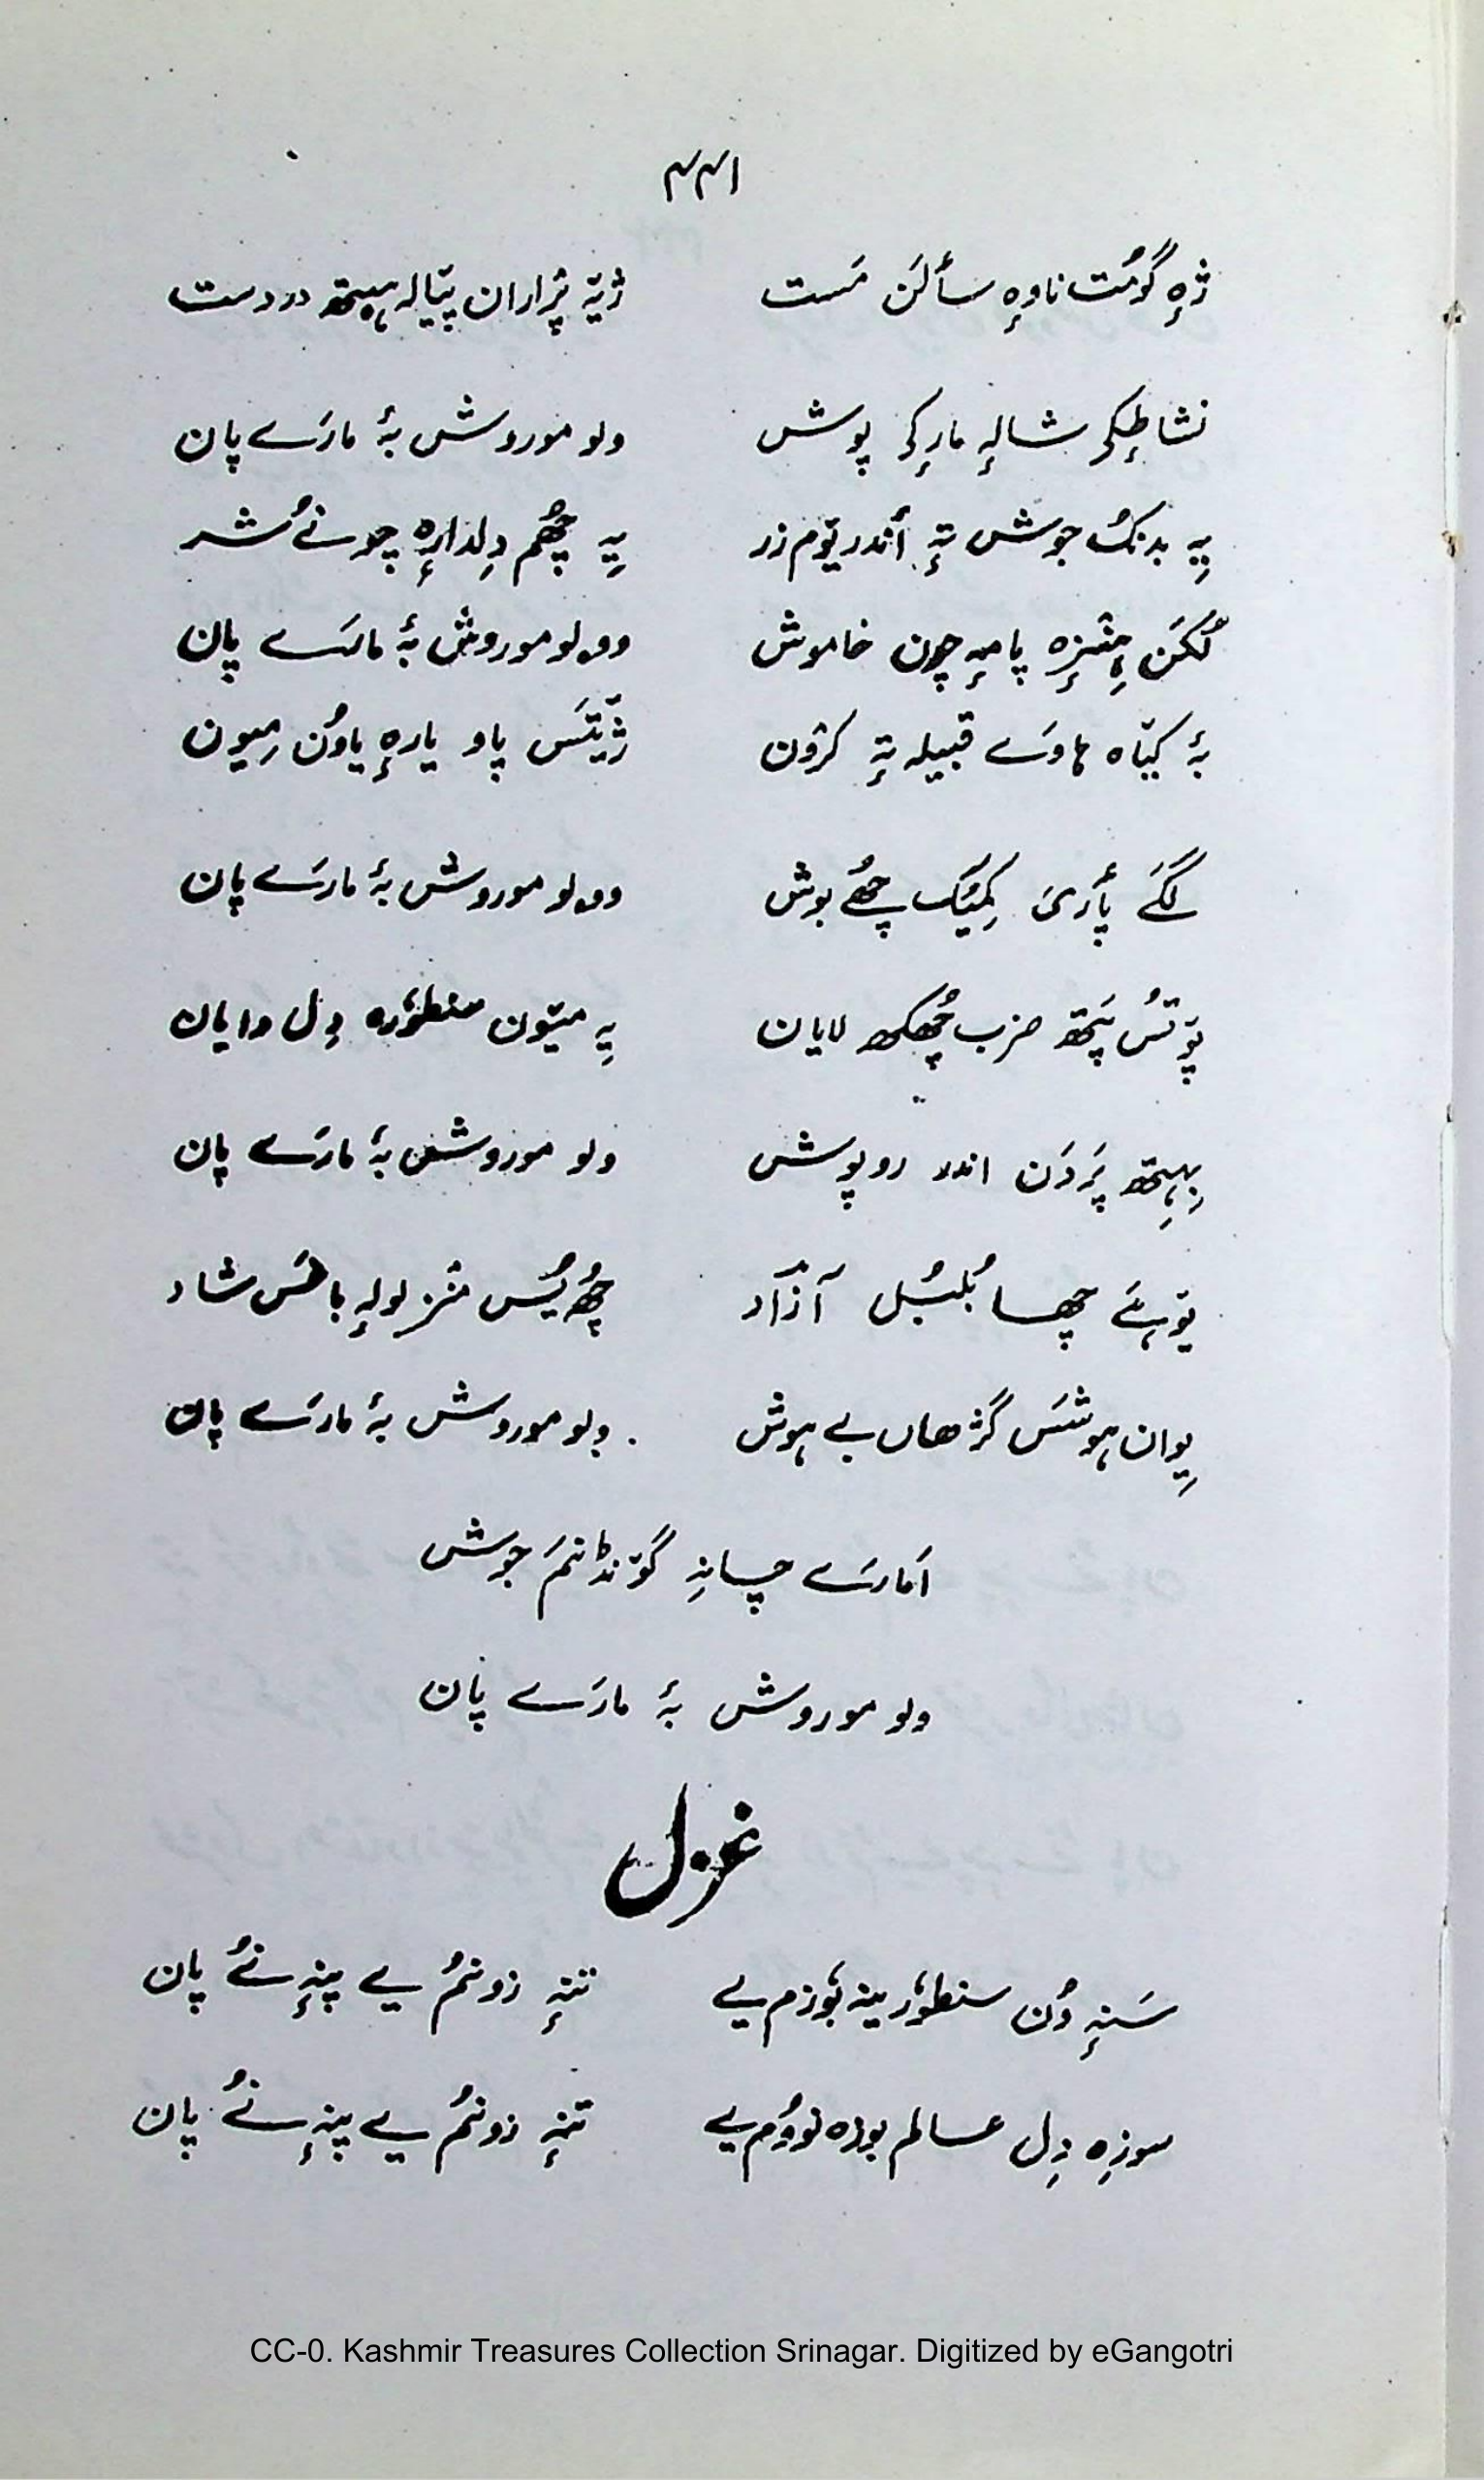 ۴۴۱
ژٕہ گومُت ناوٕہ سألَن مَست ژیّہ پرٛاران پیالہٕ ہیتھ در دست
نشاطٕکۍ شالہٕ مارٕکۍ پوش ولو موروش بۂ مارَے پان
یہِ بدنُک جوش تہٕ أندر تیوٚم زر یہِ چھُم دِلدارٕہ چونُے شر
لُکَن ہِنٛزٕہ پامہٕ چون خاموش وولو موروش بۂ مارَے پان
بۂ کیّاہ ہاوَے قبیلہ تہٕ کرٛون ژیّتَس پاو یارٕہ یاوُن میون
لگَے پأرۍ کمیُک چھُے بوش وولو موروش بۂ مارَے پان
پوٚتُس پَتھ ضرب چھُکھ لایان یہِ میّون سنطوٗرہ دِل وایان
بِہِتھ پَردَن اندر روپوش ولو موروش بۂ مارَے پان
توٚہیَے چھا بُلبُل آزاد چھُ یُس منٛز لولہٕ باغَس شاد
یِوان ہوشَس گژھان بے ہوش ولو موروش بۂ مارَے پان
اَمارَے چانہِ گوٚنڈنَم جوش
ولو موروش بۂ مارَے پان
غزل
سَنہٕ وُن سنطوٗر ینہ بوٗزم یے تنہٕ زونمُ یے پنہٕ نُے پان
سوزِہ دِل عالم بوزہ نووُم یے تنہٕ زونمُ یے پنہٕ نُے پان
CC-0. Kashmir Treasures Collection Srinagar. Digitized by eGangotri